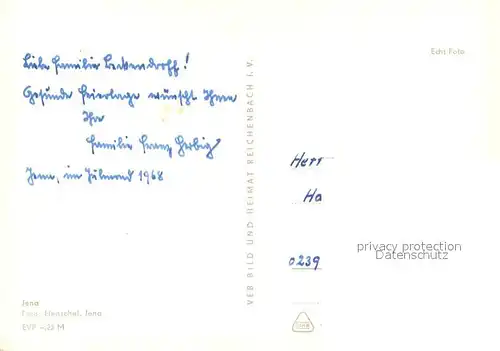 Liebe Familie Beckendorff!
Gesunde Feiertage wünscht Ihnen
Ihre
Familie Franz Herbig
Jena, im Julmond 1968
Jena
Foto: Henschel, Jena
EVP M
VEB BILD UND HEIMAT REICHENBACH I.V.
Echt Foto
Herr
Ha
0239
privacy protection
Datenschutz